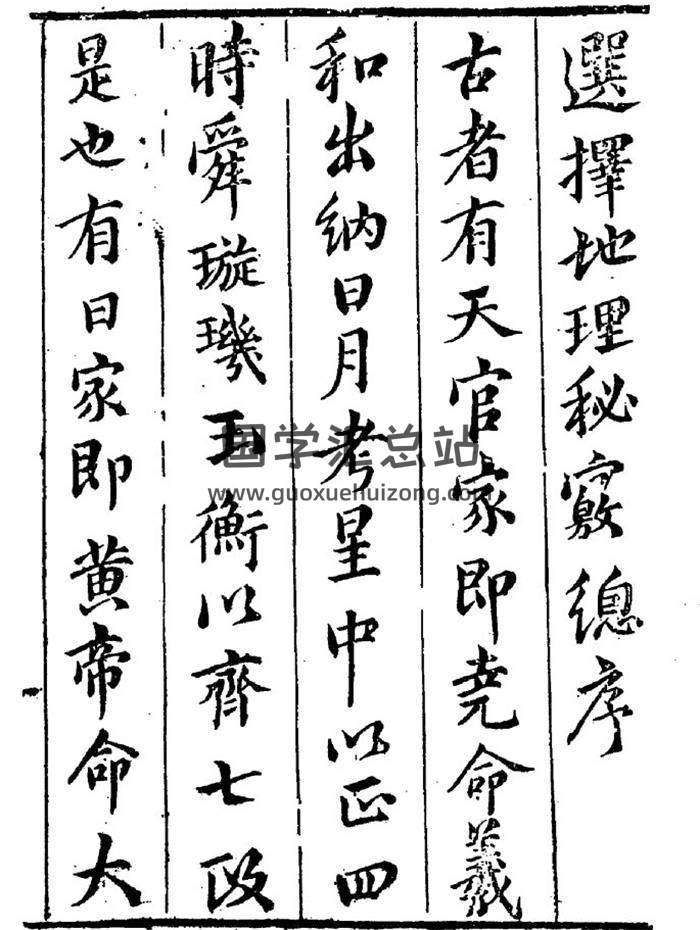 選擇地理秘竅總序
古者有天官家即堯命羲
和出納日月考星中以正四
時舜璇璣玉衡以齊七政
是也有日家即黄帝命大
国学汇总站
www.guoxuehuizong.com